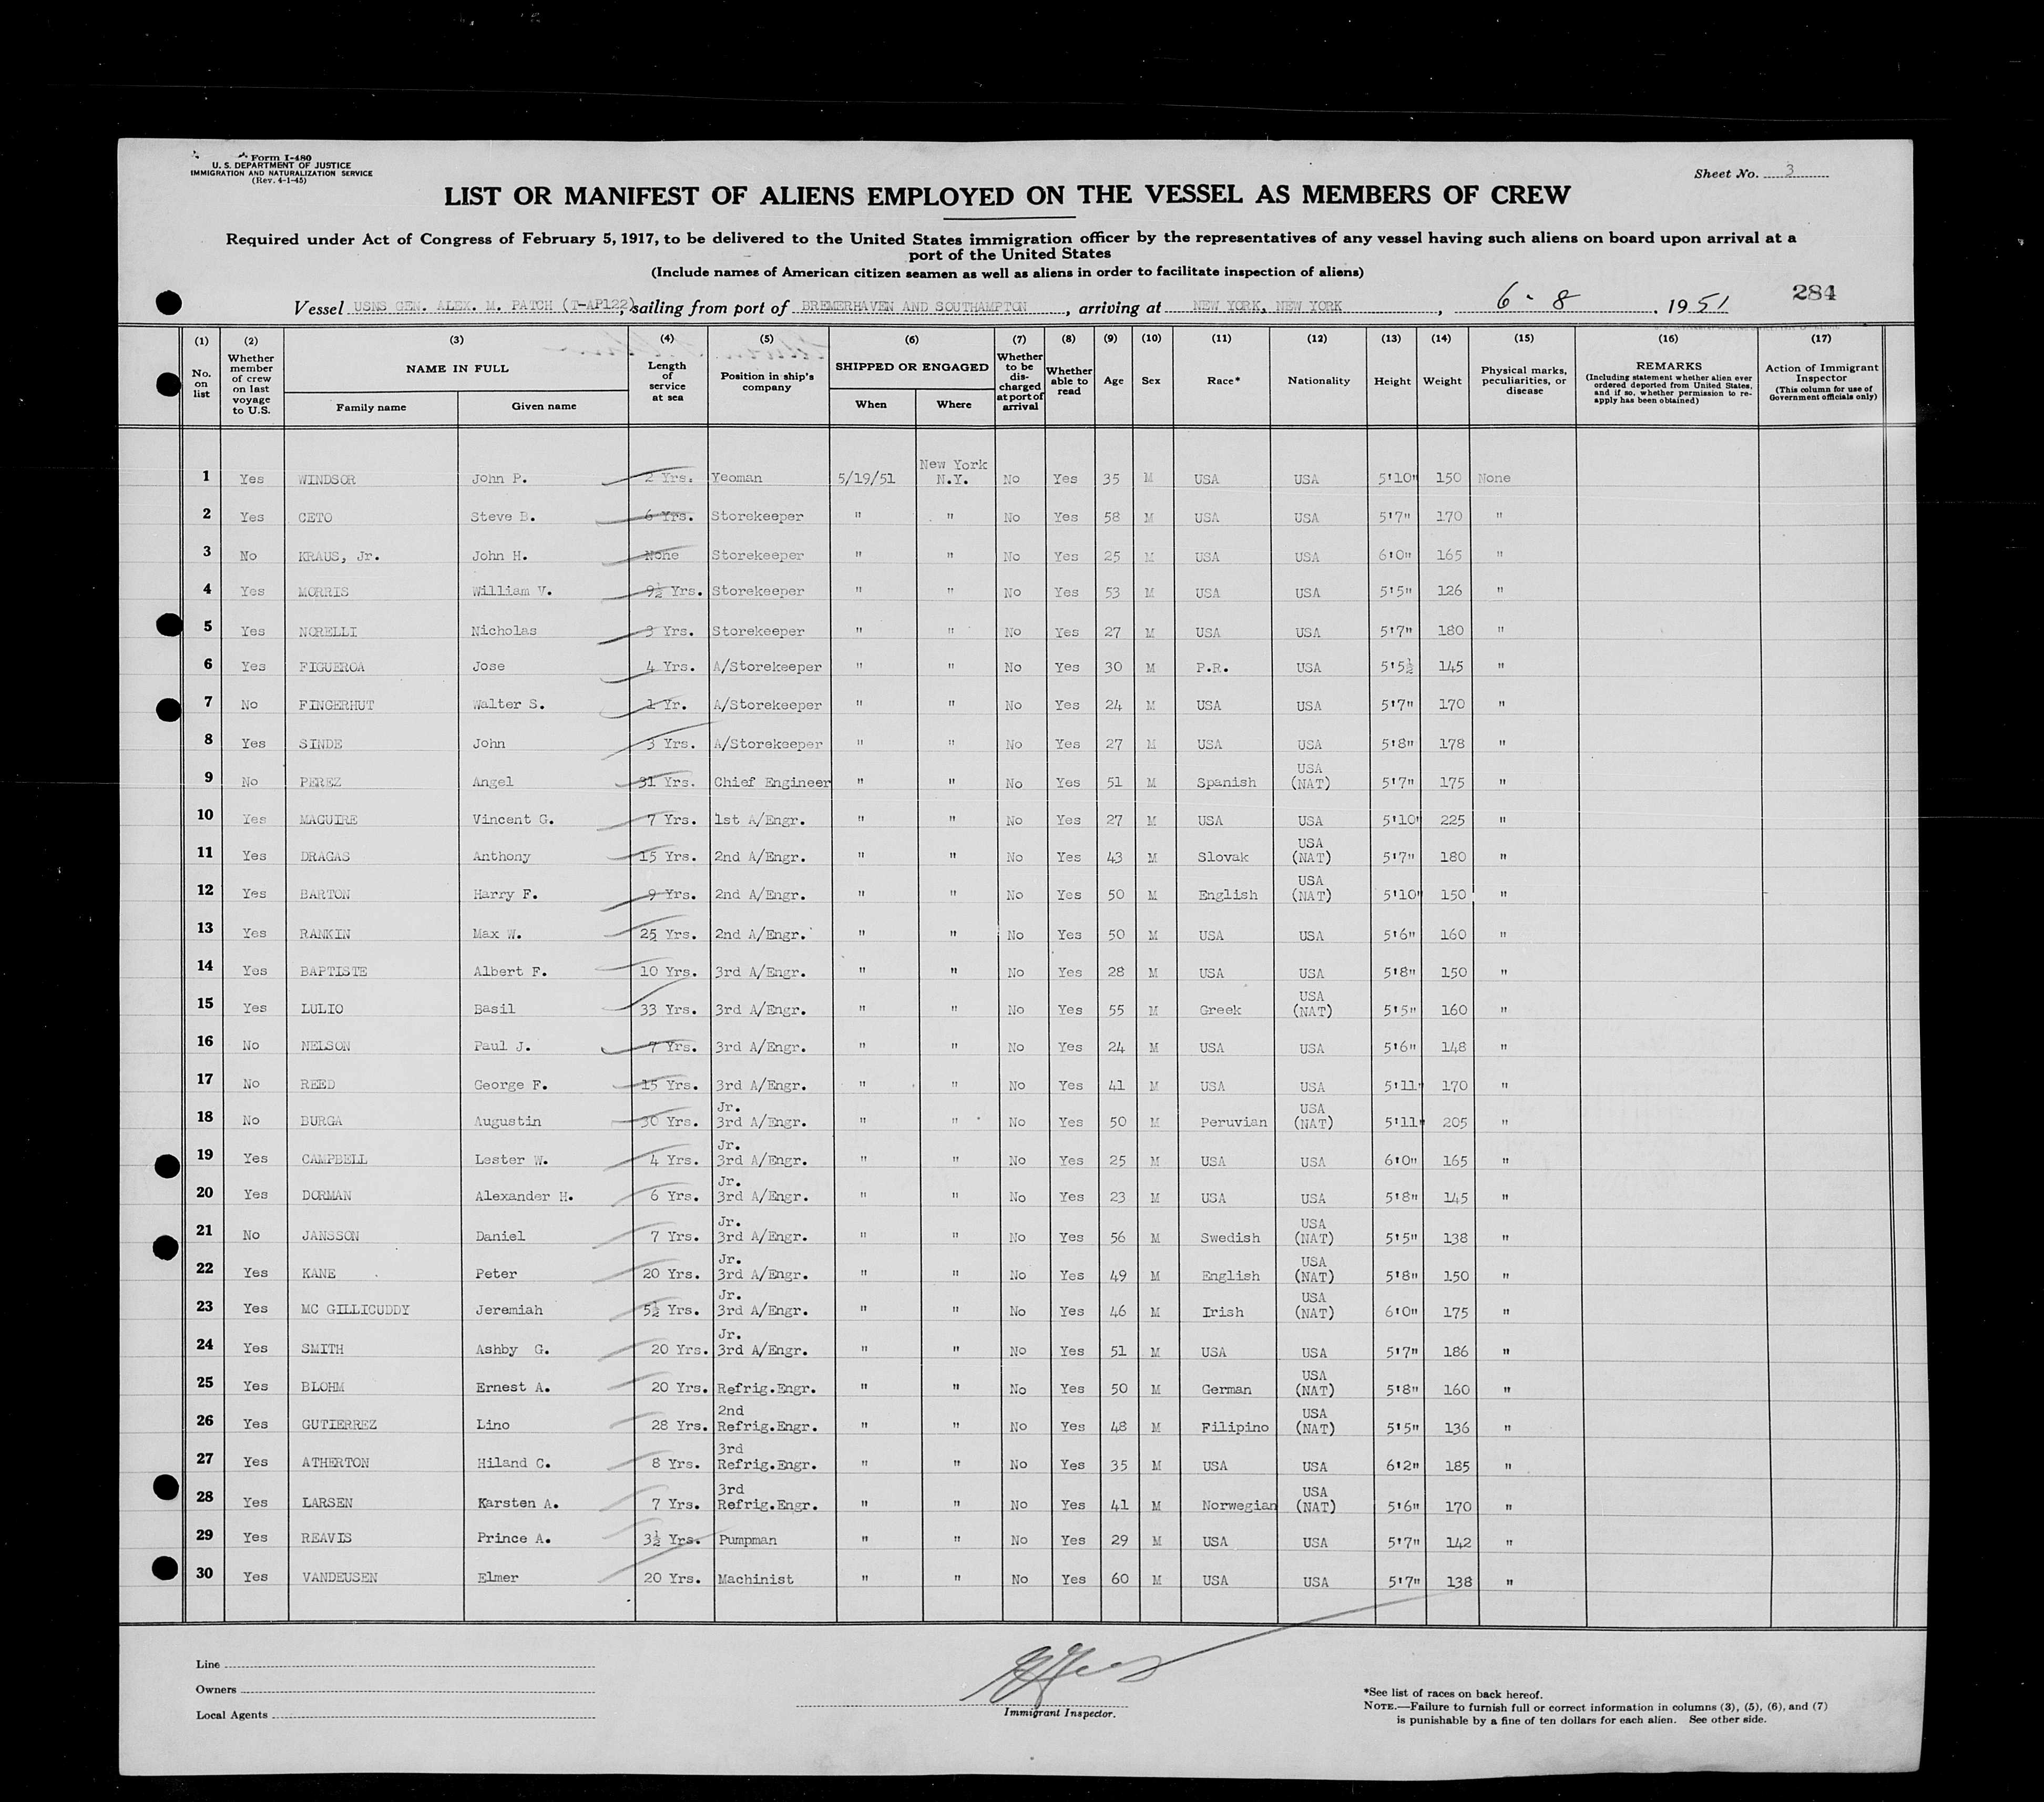 Form I-480
U. S. DEPARTMENT OF JUSTICE
IMMIGRATION AND NATURALIZATION SERVICE
(Rev. 4-1-45)
Sheet No. 3
LIST OR MANIFEST OF ALIENS EMPLOYED ON THE VESSEL AS MEMBERS OF CREW
Required under Act of Congress of February 5, 1917, to be delivered to the United States immigration officer by the representatives of any vessel having such aliens on board upon arrival at a
port of the United States
(Include names of American citizen seamen as well as aliens in order to facilitate inspection of aliens)
Vessel USNS GEN. ALEX. M. PATCH (T-AP122), sailing from port of BREMERHAVEN AND SOUTHAMPTON, arriving at NEW YORK, NEW YORK, 6 - 8, 1951 284
(1) No. on list
(2) Whether member of crew on last voyage to U.S.
(3) NAME IN FULL Family name Given name
(4) Length of service at sea
(5) Position in ship's company
(6) SHIPPED OR ENGAGED When Where
(7) Whether to be discharged at port of arrival
(8) Whether able to read
(9) Age
(10) Sex
(11) Race*
(12) Nationality
(13) Height
(14) Weight
(15) Physical marks, peculiarities, or disease
(16) REMARKS (Including statement whether alien ever ordered deported from United States, and if so, whether permission to re-apply has been obtained)
(17) Action of Immigrant Inspector (This column for use of Government officials only)
1 Yes WINDSOR John P. 2 Yrs. Yeoman 5/19/51 New York N.Y. No Yes 35 M USA USA 5'10" 150 None
2 Yes CETO Steve B. 6 Yrs. Storekeeper " " No Yes 58 M USA USA 5'7" 170 "
3 No KRAUS, Jr. John H. None Storekeeper " " No Yes 25 M USA USA 6'0" 165 "
4 Yes MORRIS William V. 9½ Yrs. Storekeeper " " No Yes 53 M USA USA 5'5" 126 "
5 Yes NORELLI Nicholas 3 Yrs. Storekeeper " " No Yes 27 M USA USA 5'7" 180 "
6 Yes FIGUEROA Jose 4 Yrs. A/Storekeeper " " No Yes 30 M P.R. USA 5'5½ 145 "
7 No FINGERHUT Walter S. 1 Yr. A/Storekeeper " " No Yes 24 M USA USA 5'7" 170 "
8 Yes SINDE John 3 Yrs. A/Storekeeper " " No Yes 27 M USA USA 5'8" 178 "
9 No PEREZ Angel 31 Yrs. Chief Engineer " " No Yes 51 M Spanish USA (NAT) 5'7" 175 "
10 Yes MAGUIRE Vincent G. 7 Yrs. 1st A/Engr. " " No Yes 27 M USA USA 5'10" 225 "
11 Yes DRAGAS Anthony 15 Yrs. 2nd A/Engr. " " No Yes 43 M Slovak USA (NAT) 5'7" 180 "
12 Yes BARTON Harry F. 9 Yrs. 2nd A/Engr. " " No Yes 50 M English USA (NAT) 5'10" 150 "
13 Yes RANKIN Max W. 25 Yrs. 2nd A/Engr. " " No Yes 50 M USA USA 5'6" 160 "
14 Yes BAPTISTE Albert F. 10 Yrs. 3rd A/Engr. " " No Yes 28 M USA USA 5'8" 150 "
15 Yes LULIO Basil 33 Yrs. 3rd A/Engr. " " No Yes 55 M Greek USA (NAT) 5'5" 160 "
16 No NELSON Paul J. 7 Yrs. 3rd A/Engr. " " No Yes 24 M USA USA 5'6" 148 "
17 No REED George F. 15 Yrs. 3rd A/Engr. " " No Yes 41 M USA USA 5'11" 170 "
18 No BURGA Augustin 30 Yrs. Jr. 3rd A/Engr. " " No Yes 50 M Peruvian USA (NAT) 5'11" 205 "
19 Yes CAMPBELL Lester W. 4 Yrs. Jr. 3rd A/Engr. " " No Yes 25 M USA USA 6'0" 165 "
20 Yes DORMAN Alexander H. 6 Yrs. Jr. 3rd A/Engr. " " No Yes 23 M USA USA 5'8" 145 "
21 No JANSSON Daniel 7 Yrs. Jr. 3rd A/Engr. " " No Yes 56 M Swedish USA (NAT) 5'5" 138 "
22 Yes KANE Peter 20 Yrs. Jr. 3rd A/Engr. " " No Yes 49 M English USA (NAT) 5'8" 150 "
23 Yes MC GILLICUDDY Jeremiah 5½ Yrs. Jr. 3rd A/Engr. " " No Yes 46 M Irish USA (NAT) 6'0" 175 "
24 Yes SMITH Ashby G. 20 Yrs. Jr. 3rd A/Engr. " " No Yes 51 M USA USA 5'7" 186 "
25 Yes BLOHM Ernest A. 20 Yrs. Refrig.Engr. " " No Yes 50 M German USA (NAT) 5'8" 160 "
26 Yes GUTIERREZ Lino 28 Yrs. 2nd Refrig.Engr. " " No Yes 48 M Filipino USA (NAT) 5'5" 136 "
27 Yes ATHERTON Hiland C. 8 Yrs. 3rd Refrig.Engr. " " No Yes 35 M USA USA 6'2" 185 "
28 Yes LARSEN Karsten A. 7 Yrs. 3rd Refrig.Engr. " " No Yes 41 M Norwegian USA (NAT) 5'6" 170 "
29 Yes REAVIS Prince A. 3½ Yrs. Pumpman " " No Yes 29 M USA USA 5'7" 142 "
30 Yes VANDEUSEN Elmer 20 Yrs. Machinist " " No Yes 60 M USA USA 5'7" 138 "
Line
Owners
Local Agents
Immigrant Inspector.
*See list of races on back hereof.
NOTE.—Failure to furnish full or correct information in columns (3), (5), (6), and (7)
is punishable by a fine of ten dollars for each alien. See other side.